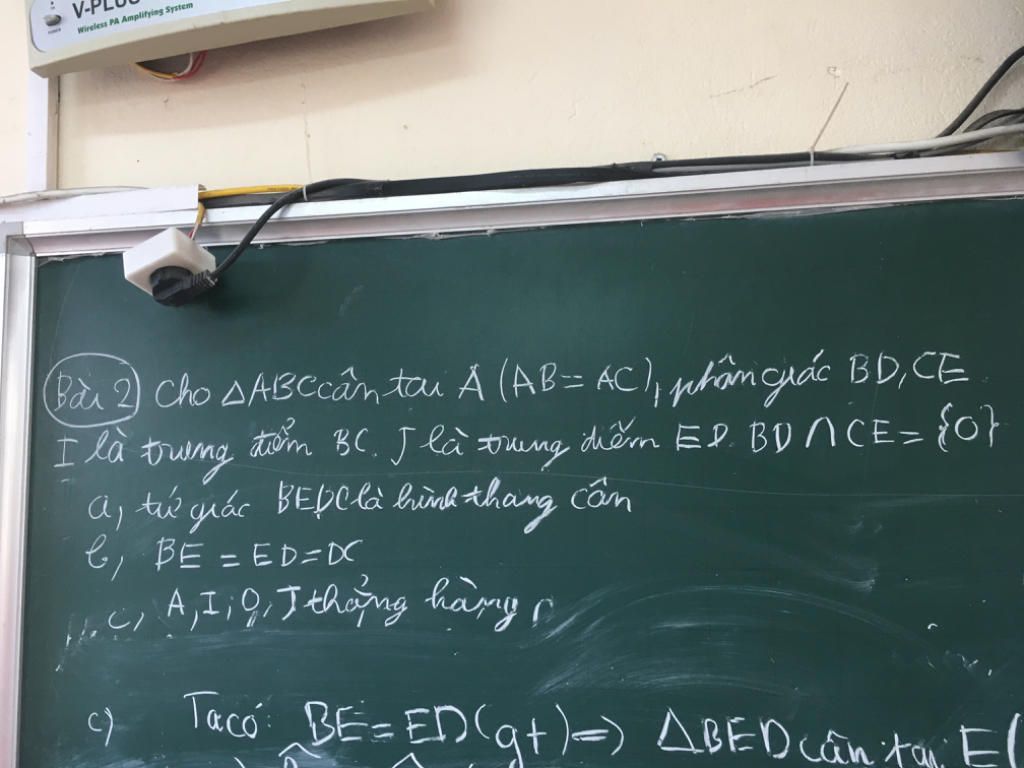 V-PLUS
Wireless PA Amplifying System
POWER
Bài 2 Cho △ABC cân tại A (AB = AC), phân giác BD, CE
I là trung điểm BC. J là trung điểm ED. BD ∩ CE = {O}
a, tứ giác BEDC là hình thang cân
b, BE = ED = DC
c, A, I, O, J thẳng hàng
c) Ta có: BE = ED (gt) => △BED cân tại E (